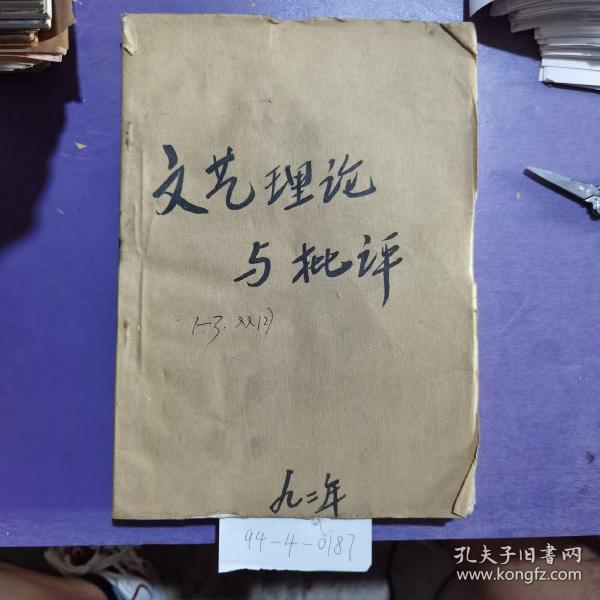 文艺理论
与批评
1-3.双月
九二年
94-4-0187
孔夫子旧书网
www.kongfz.com